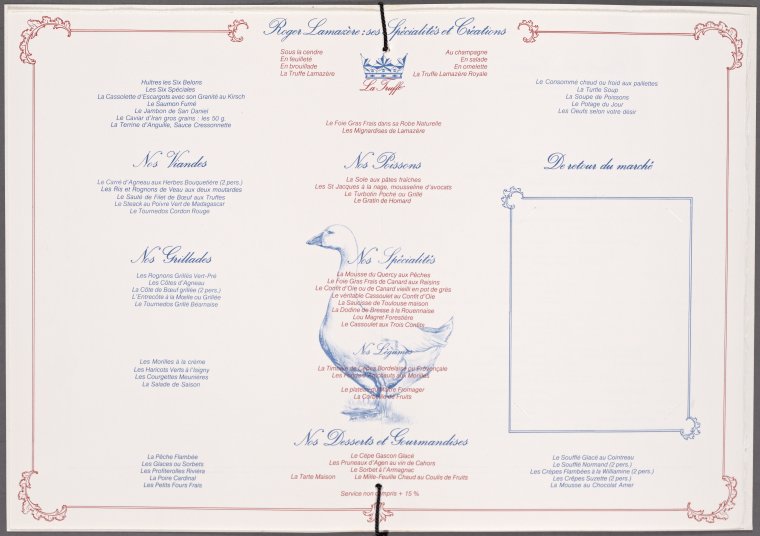 Roger Lamazère : ses Spécialités et Créations
Sous la cendre
En feuilleté
En brouillade
La Truffe Lamazère
Au champagne
En salade
En omelette
La Truffe Lamazère Royale
La Truffe
Huîtres les Six Belons
Les Six Spéciales
La Cassolette d'Escargots avec son Granité au Kirsch
Le Saumon Fumé
Le Jambon de San Daniel
Le Caviar d'Iran gros grains : les 50 g.
La Terrine d'Anguille, Sauce Cressonnette
Le Foie Gras Frais dans sa Robe Naturelle
Les Mignardises de Lamazère
Le Consommé chaud ou froid aux paillettes
La Turtle Soup
La Soupe de Poissons
Le Potage du Jour
Les Oeufs selon votre désir
Nos Viandes
Le Carré d'Agneau aux Herbes Bouquetière (2 pers.)
Les Ris et Rognons de Veau aux deux moutardes
Le Sauté de Filet de Bœuf aux Truffes
Le Steack au Poivre Vert de Madagascar
Le Tournedos Cordon Rouge
Nos Poissons
La Sole aux pâtes fraîches
Les St Jacques à la nage, mousseline d'avocats
Le Turbotin Poché ou Grillé
Le Gratin de Homard
De retour du marché
Nos Grillades
Les Rognons Grillés Vert-Pré
Les Côtes d'Agneau
La Côte de Bœuf grillée (2 pers.)
L'Entrecôte à la Moelle ou Grillée
Le Tournedos Grillé Béarnaise
Nos Spécialités
La Mousse du Quercy aux Pêches
Le Foie Gras Frais de Canard aux Raisins
Le Confit d'Oie ou de Canard vieilli en pot de grès
Le véritable Cassoulet au Confit d'Oie
La Saucisse de Toulouse maison
La Dodine de Bresse à la Rouennaise
Lou Magret Forestière
Le Cassoulet aux Trois Confits
Les Morilles à la crème
Les Haricots Verts à l'Isigny
Les Courgettes Meunières
La Salade de Saison
Nos Légumes
La Timbale de Cèpes Bordelaise ou Provençale
Les Fonds d'Artichauts aux Morilles
Le plateau du Maître Fromager
La Corbeille de Fruits
Nos Desserts et Gourmandises
La Pêche Flambée
Les Glaces ou Sorbets
Les Profiterolles Riviéra
La Poire Cardinal
Les Petits Fours Frais
Le Cèpe Gascon Glacé
Les Pruneaux d'Agen au vin de Cahors
Le Sorbet à l'Armagnac
La Tarte Maison Le Mille-Feuille Chaud au Coulis de Fruits
Service non compris + 15 %
Le Soufflé Glacé au Cointreau
Le Soufflé Normand (2 pers.)
Les Crêpes Flambées à la Williamine (2 pers.)
Les Crêpes Suzette (2 pers.)
La Mousse au Chocolat Amer